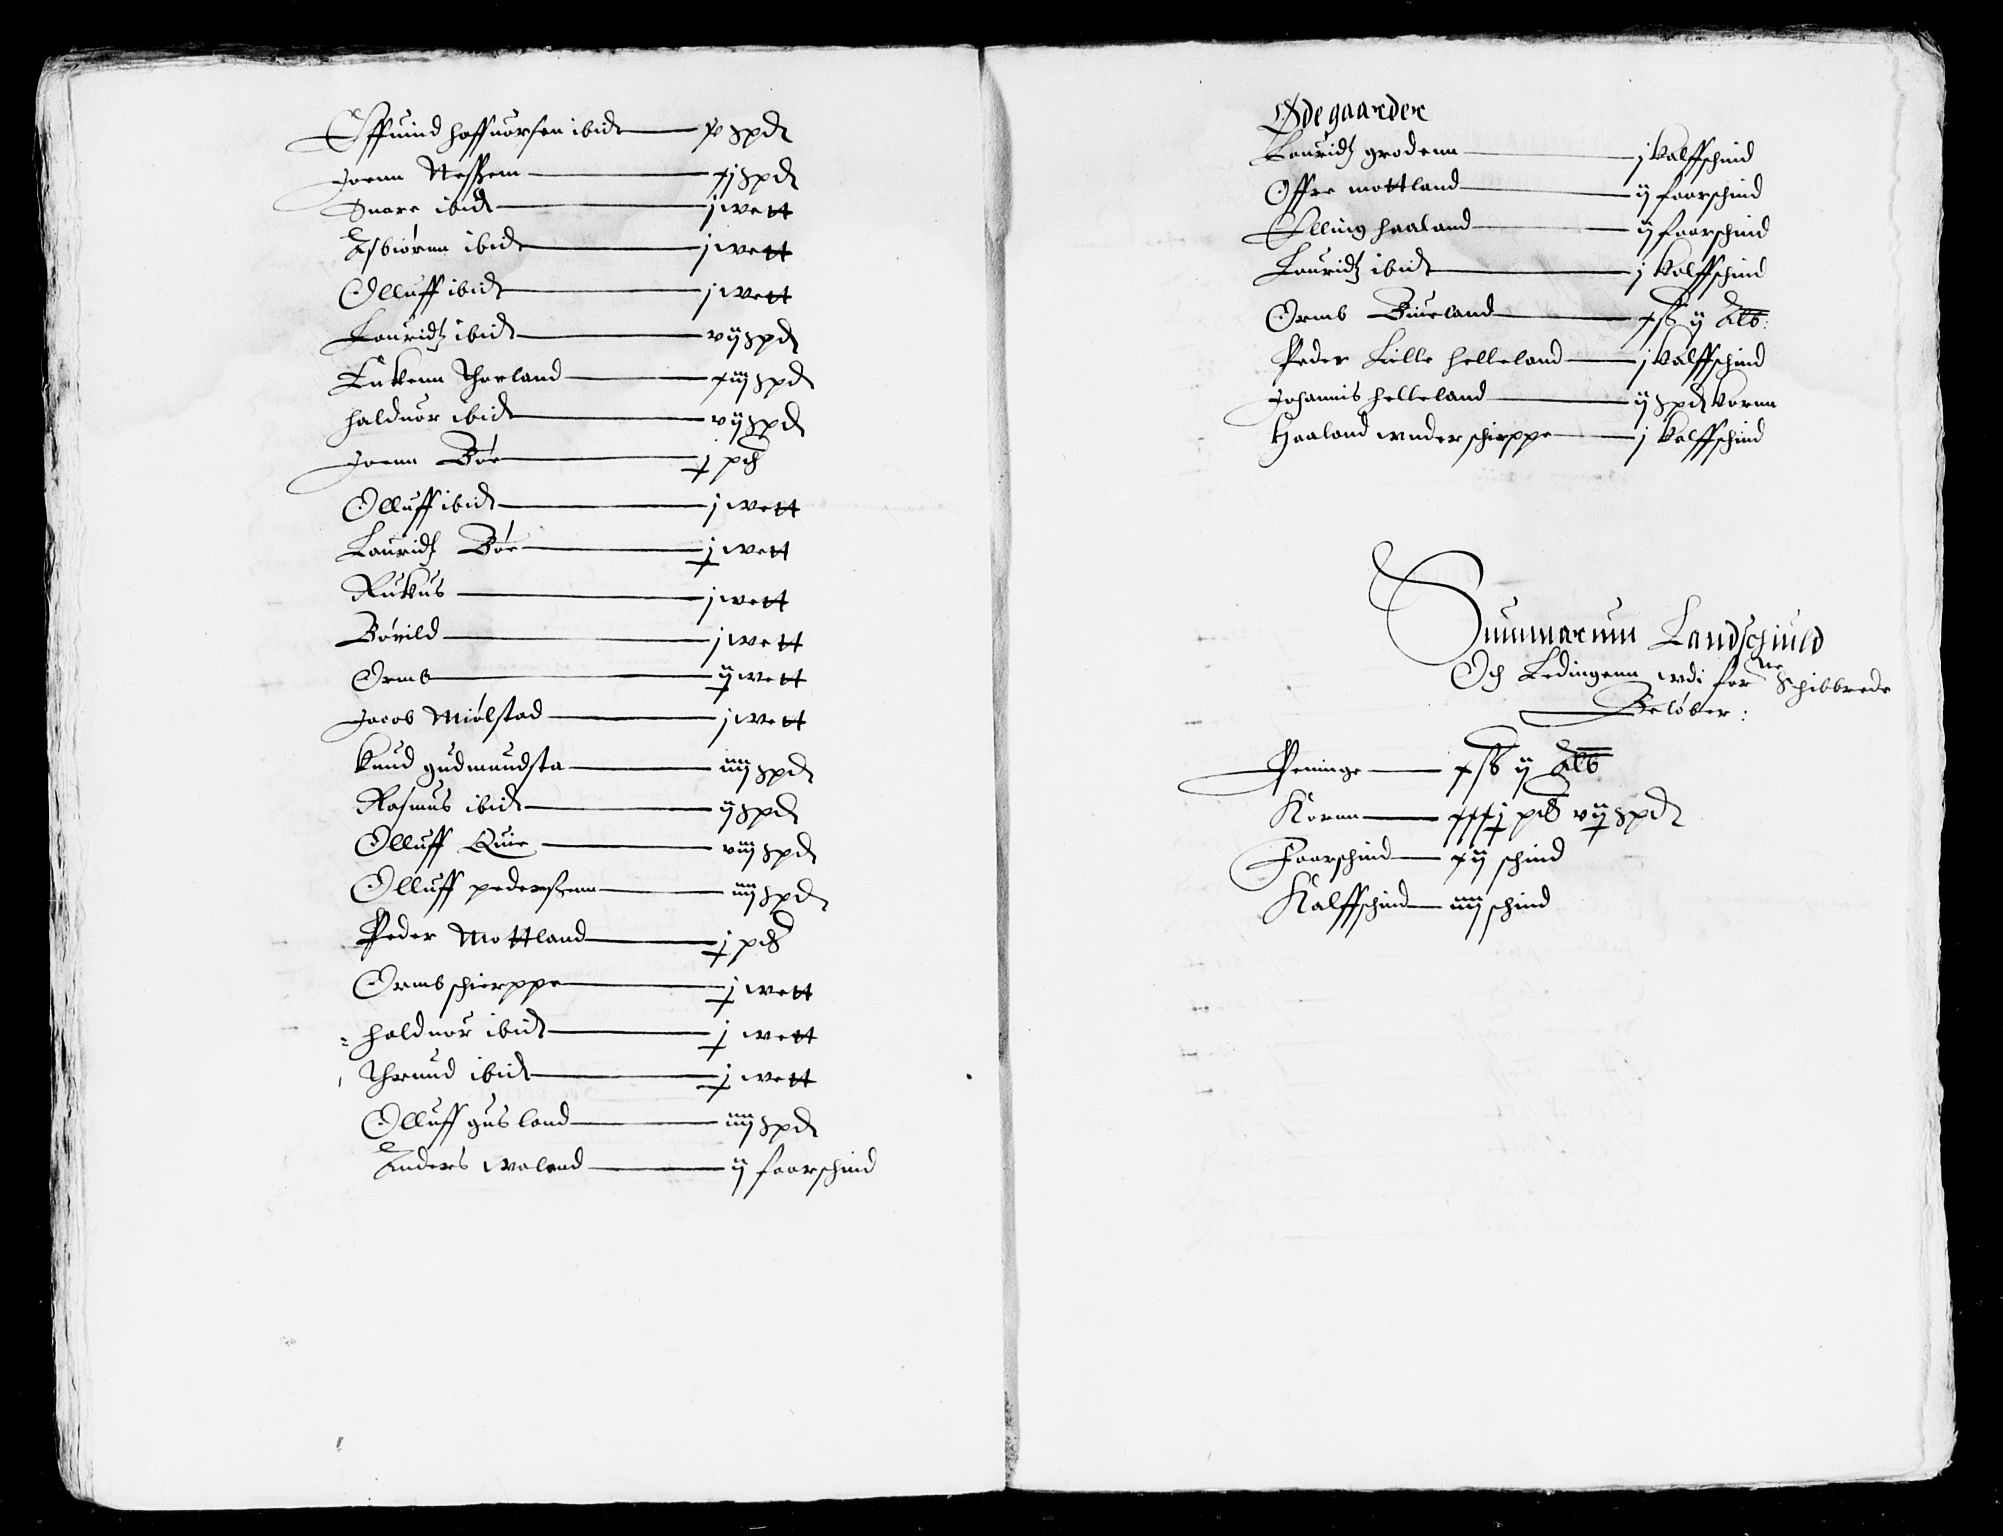 Effuind haffuorsen ibid — x spd
Joenn Nessheim — xj spd
Snare ibid — j wett
Asbiørnn ibid — j wett
Olluff ibid — j wett
Lauridtz ibid — vij spd
Enkenn Thorland — xiij spd
Halduor ibid — vij spd
Joenn Bøe — j pd
Olluff ibid — j wett
Lauridtz Bøe — j wett
Rukus — j wett
Bøeild — j wett
Ormb — ij wett
Jacob Miølstad — j wett
Knud gudmundsta — iiij spd
Rasmus ibid — ij spd
Olluff Quie — viij spd
Olluff pederszenn — iiij spd
Peder Mottland — j pd
Ormb schierppe — j wett
Halduor ibid — j wett
Thrund ibid — j wett
Olluff gusland — iiij spd
Anders waland — ij faarschind
Ødegaarder
Lauridtz grodenn — j kalffschind
Offre mottland — ij faarschind
Elling haaland — ij faarschind
Lauridtz ibid — j kalffschind
Ormb Biueland — xß ij alb:
Peder Lille helleland — j kalffschind
Johannis helleland — ij spd kornn
Haaland wnder schierppe — j kalffschind
Summarum Landschiuld
Och Ledingenn wdi forne Schibbrede
Beløber:
Peninge — xß ij alb
Kornn — xxxj pd vij spd
Faarschind — xij schind
Kalffschind — iiij schind